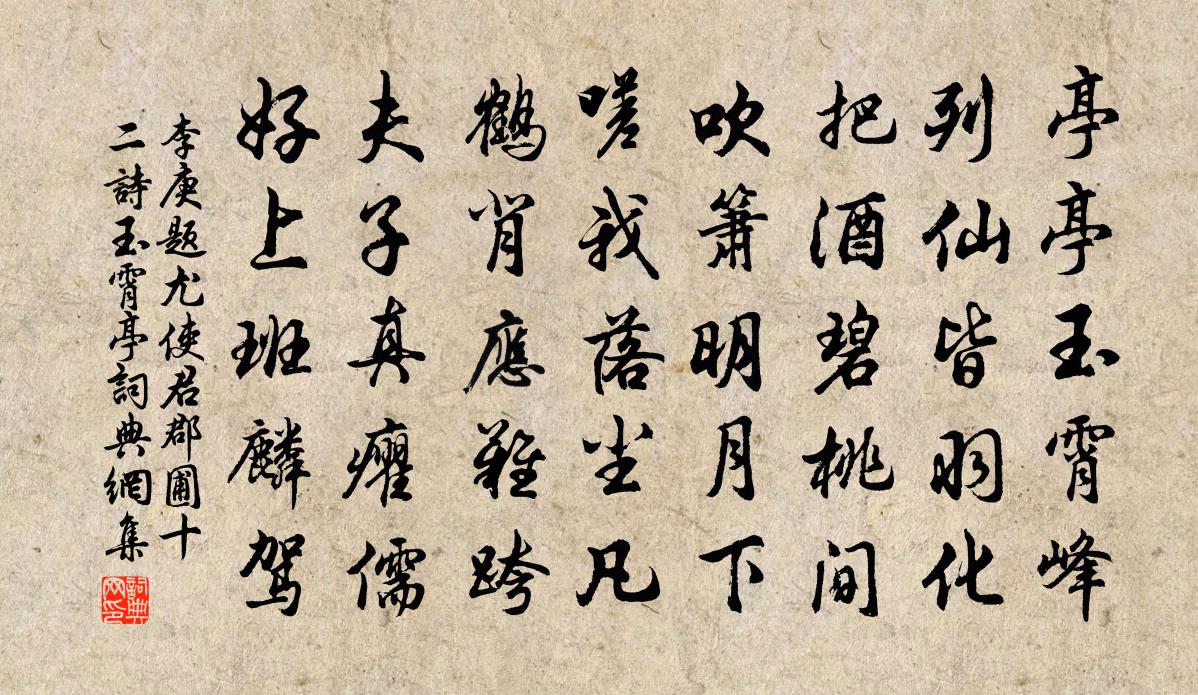 亭亭玉霄峰
列仙皆羽化
把酒碧桃間
吹簫明月下
嗟我落尘凡
鶴背應難跨
夫子真癯儒
好上班麟駕
李庚题尤使君郡圃十
二詩玉霄亭詞典網集
詞典
网印